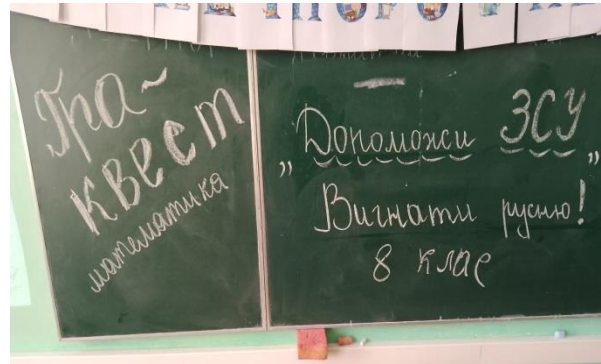 Гра-
квест
математика
„Допоможи ЗСУ
Вигнати русню!”
8 клас